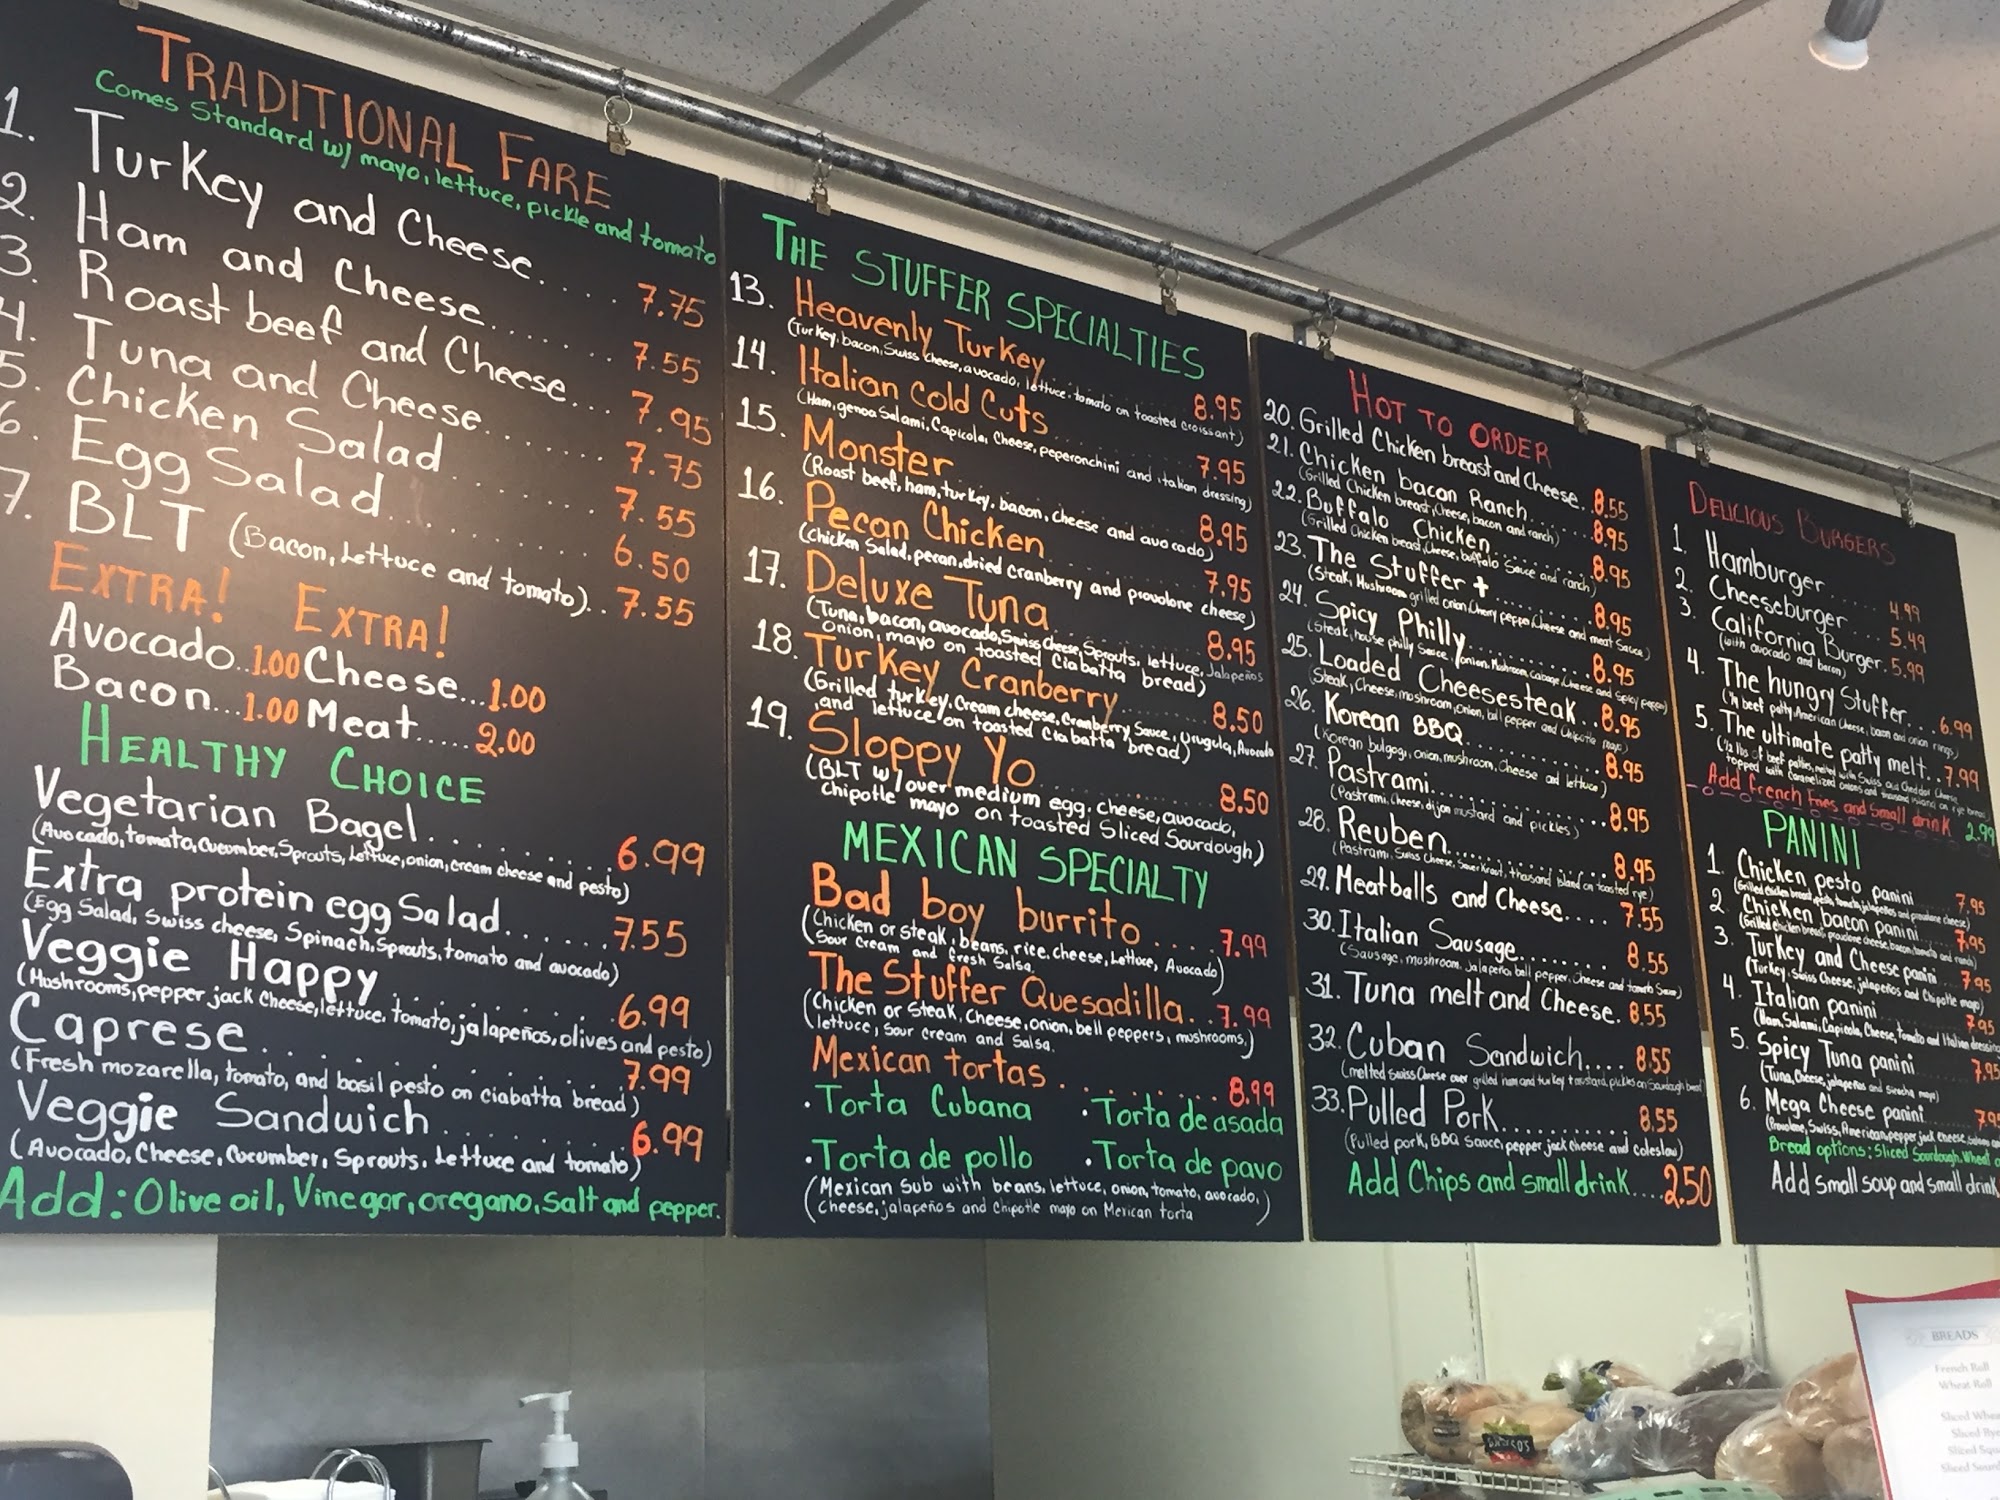 TRADITIONAL FARE
Comes Standard w/ mayo, lettuce, pickle and tomato
1. Turkey and Cheese.... 7.75
2. Ham and Cheese....... 7.55
3. Roast beef and Cheese... 7.95
4. Tuna and Cheese....... 7.75
5. Chicken Salad........ 7.55
6. Egg Salad.......... 6.50
7. BLT (Bacon, Lettuce and tomato).. 7.55
EXTRA! EXTRA!
Avocado..1.00 Cheese...1.00
Bacon...1.00 Meat.....2.00
HEALTHY CHOICE
Vegetarian Bagel......... 6.99
(Avocado, tomato, Cucumber, Sprouts, Lettuce, onion, cream cheese and pesto)
Extra protein egg Salad...... 7.55
(Egg Salad, Swiss cheese, Spinach, Sprouts, tomato and avocado)
Veggie Happy.......... 6.99
(Mushrooms, pepper jack Cheese, lettuce, tomato, jalapeños, olives and pesto)
Caprese............ 7.99
(Fresh mozarella, tomato, and basil pesto on ciabatta bread)
Veggie Sandwich......... 6.99
(Avocado, Cheese, Cucumber, Sprouts, Lettuce and tomato)
Add: Olive oil, Vinegar, oregano, Salt and pepper.
THE STUFFER SPECIALTIES
13. Heavenly Turkey........ 8.95
(Turkey, bacon, Swiss Cheese, avocado, lettuce, tomato on toasted croissant)
14. Italian Cold Cuts........ 7.95
(Ham, genoa Salami, Capicola, Cheese, peperonchini and italian dressing)
15. Monster.......... 8.95
(Roast beef, ham, turkey, bacon, cheese and avocado)
16. Pecan Chicken........ 7.95
(Chicken Salad, pecan, dried cranberry and provolone cheese)
17. Deluxe Tuna......... 8.95
(Tuna, bacon, avocado, Swiss Cheese, Sprouts, lettuce, Jalapeños
Onion, mayo on toasted Ciabatta bread)
18. Turkey Cranberry........ 8.50
(Grilled turkey, Cream cheese, Cranberry Sauce, Urugula, Avocado
and lettuce on toasted Ciabatta bread)
19. Sloppy Yo........... 8.50
(BLT w/ over medium egg, cheese, avocado,
chipotle mayo on toasted Sliced Sourdough)
MEXICAN SPECIALTY
Bad boy burrito.... 7.99
(Chicken or Steak, beans, rice, cheese, Lettuce, Avocado)
Sour Cream and fresh Salsa.
The Stuffer Quesadilla.. 7.99
(Chicken or Steak, Cheese, onion, bell peppers, mushrooms,
lettuce, Sour cream and Salsa.)
Mexican tortas......... 8.99
• Torta Cubana • Torta de asada
• Torta de pollo • Torta de pavo
(Mexican Sub with beans, lettuce, onion, tomato, avocado,
cheese, jalapeños and Chipotle mayo on Mexican torta)
HOT TO ORDER
20. Grilled Chicken breast and Cheese..8.55
21. Chicken bacon Ranch........8.95
(Grilled Chicken breast, Cheese, bacon and ranch)
22. Buffalo Chicken.........8.95
(Grilled Chicken breast, Cheese, buffalo Sauce and ranch)
23. The Stuffer +..........8.95
(Steak, Mushroom, grilled onion, Cherry pepper, Cheese and meat Sauce)
24. Spicy Philly..........8.95
(Steak, house philly Sauce, onion, Mushroom, Cabage, Cheese and Spicy pepper)
25. Loaded Cheesesteak..8.95
(Steak, Cheese, moshroom, Onion, bell pepper and Chipotle mayo)
26. Korean BBQ..........8.95
(Korean bulgogi, onion, mushroom, Cheese and lettuce)
27. Pastrami...........8.95
(Pastrami, Cheese, dijon mustard and pickles)
28. Reuben............8.95
(Pastrami, Swiss Cheese, Sauerkraut, thousand Island on toasted rye)
29. Meatballs and Cheese.... 7.55
30. Italian Sausage........ 8.55
(Sausage, moshroom, Jalapeño, bell pepper, Cheese and tomato Sauce)
31. Tuna melt and Cheese. 8.55
32. Cuban Sandwich.... 8.55
(melted Swiss Cheese over grilled ham and turkey + mustard, pickles on Sourdough bread)
33. Pulled Pork.......... 8.55
(Pulled pork, BBQ Sauce, pepper jack cheese and coleslaw)
Add Chips and small drink....2.50
DELICIOUS BURGERS
1. Hamburger...... 4.99
2. Cheeseburger.... 5.49
3. California Burger. 5.99
(with avocado and bacon)
4. The hungry Stuffer... 6.99
(beef patty, American Cheese, bacon and onion rings)
5. The ultimate patty melt..7.99
(1/2 lbs of beef patties, melted with Swiss and Cheddar Cheese
topped with Caramelized onions and thousand island on rye bread)
Add French Fries and Small drink 2.99
PANINI
1. Chicken pesto panini.... 7.95
(Grilled chicken breast, pesto, tomato, jalapeños and provolone cheese)
2. Chicken bacon panini.... 7.95
(Grilled chicken breast, provolone cheese, bacon, tomato and ranch)
3. Turkey and Cheese panini. 7.95
(Turkey, Swiss Cheese, jalapeños and Chipotle mayo)
4. Italian panini....... 7.95
(Ham, Salami, Capicola, Cheese, Tomato and Italian dressing
5. Spicy Tuna panini..... 7.95
(Tuna, Cheese, jalapeños and siracha mayo)
6. Mega Cheese panini.... 7.95
(Provolone, Swiss, American, pepper jack cheese,
Bread options: Sliced Sourdough, Wheat
Add small soup and small drink
BREADS
French Roll
Wheat Roll
Sliced Whea
Sliced Rye
Sliced Squ
Sliced Sourd